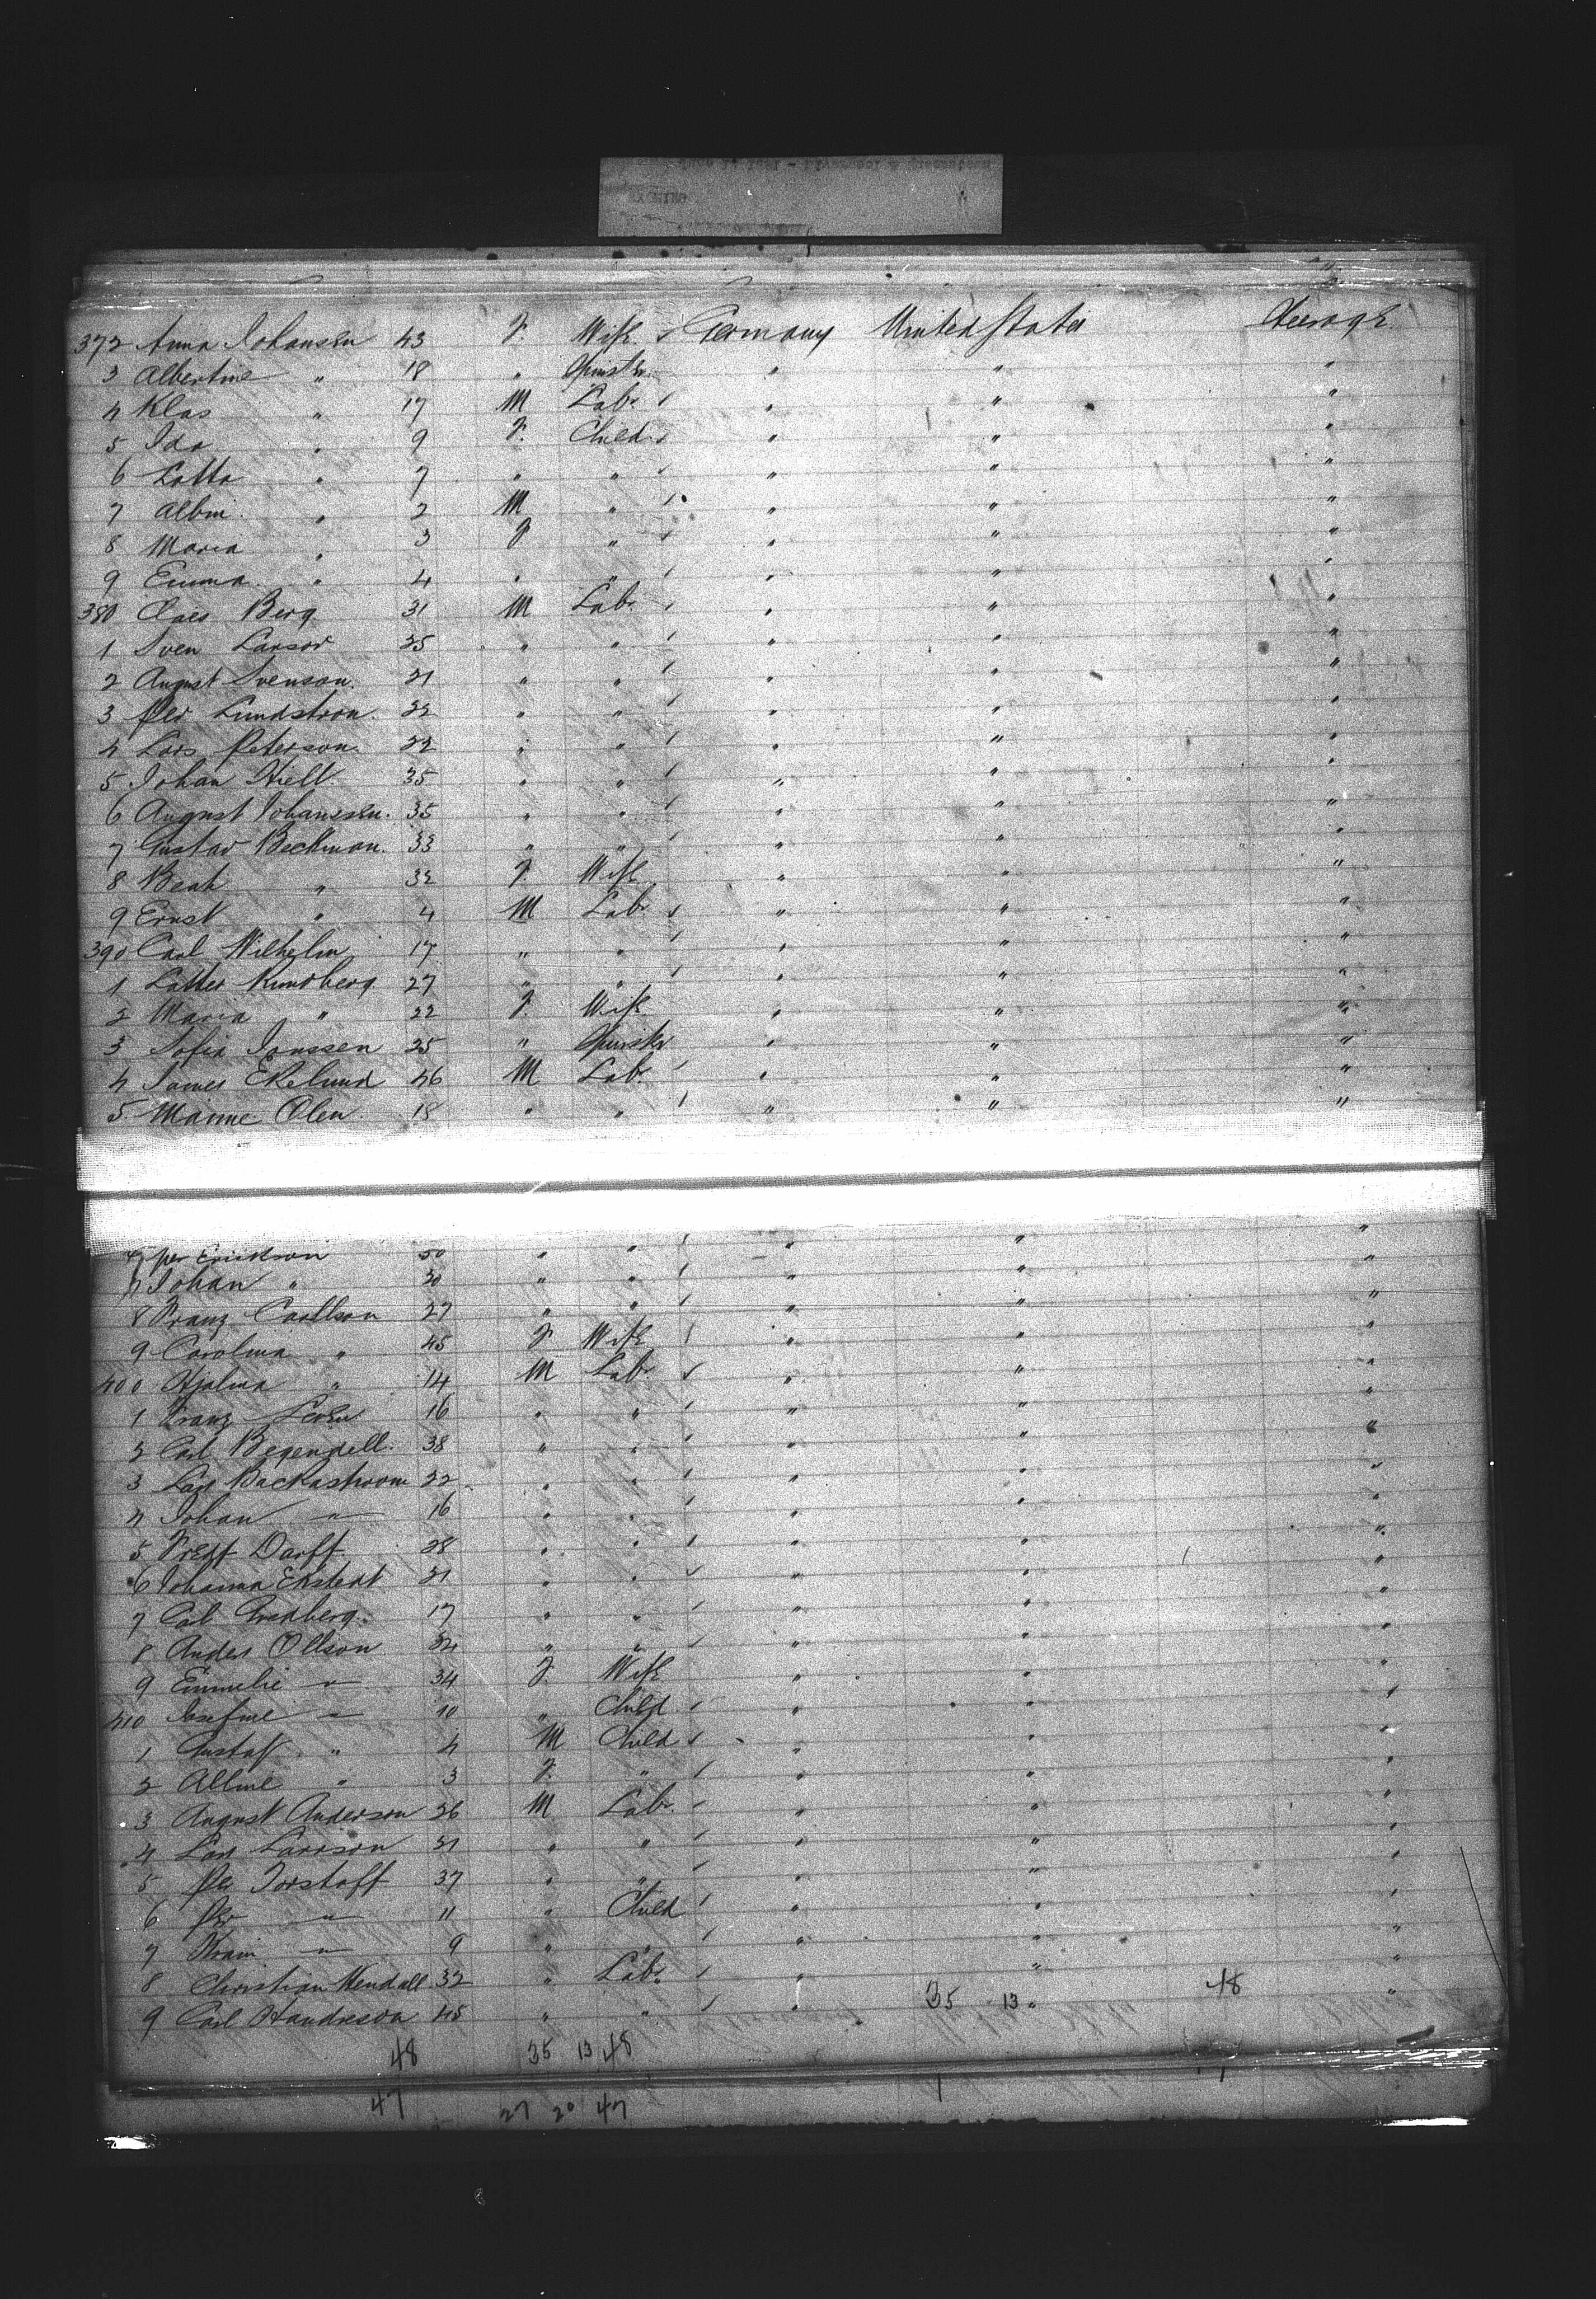 372 Anna Johansen 43 F. Wife Germany United States Steerage
3 Albertine " 18 " Spinster " " "
4 Klas " 17 M Labr " " "
5 Ida " 9 F. Child " " "
6 Lotta " 7 " " " " "
7 Albin " 2 M " " " "
8 Maria " 3 F " " " "
9 Emma " 4 " " " " "
380 Claes Berg 31 M Labr " " "
1 Sven Larson 25 " " " " "
2 August Svenson 21 " " " " "
3 Per Lundstron 22 " " " " "
4 Lars Peterson 22 " " " " "
5 Johan 35 " " " " "
6 August Johanssen 35 " " " " "
7 Gustav Beckman 33 " " " " "
8 Beat " 32 F. Wife " " "
9 Ernst " 4 M Labr " " "
390 Carl Wilhelm 17 " " " " "
1 27 " " " " "
2 Maria " 22 F. Wife " " "
3 Sofia Jonssen 25 " Spinster " " "
4 James Ekelund 46 M Labr " " "
5 Olen 18 " " " " "
Per Erickson 50 " " " " "
7 Johan " 20 " " " " "
8 Franz Carllson 27 " " " " "
9 Carolina " 45 F. Wife " " "
400 Hjalma " 14 M Labr " " "
1 Franz 16 " " " " "
2 Carl 38 " " " " "
3 Lars Backastroom 22 " " " " "
4 Johan " 16 " " " " "
5 Darff 28 " " " " "
6 Johanna Ekstedt 21 " " " " "
7 Carl 17 " " " " "
8 Anders Ollson 34 " " " " "
9 Emmelie " 34 F. Wife " " "
410 Josefine " 10 " Child " " "
1 Gustaf " 4 M Child " " "
2 " 3 F. " " " "
3 August Anderson 26 M Labr " " "
4 Lars Larsson 21 " " " " "
5 Per Torstoff 37 " " " " "
6 Per " 11 " Child " " "
7 " 9 " " " " "
8 Christian Wendall 32 " Labr " " "
9 Carl 45 " " " 35 13 " 48 "
48 35 13 48
47 27 20 47